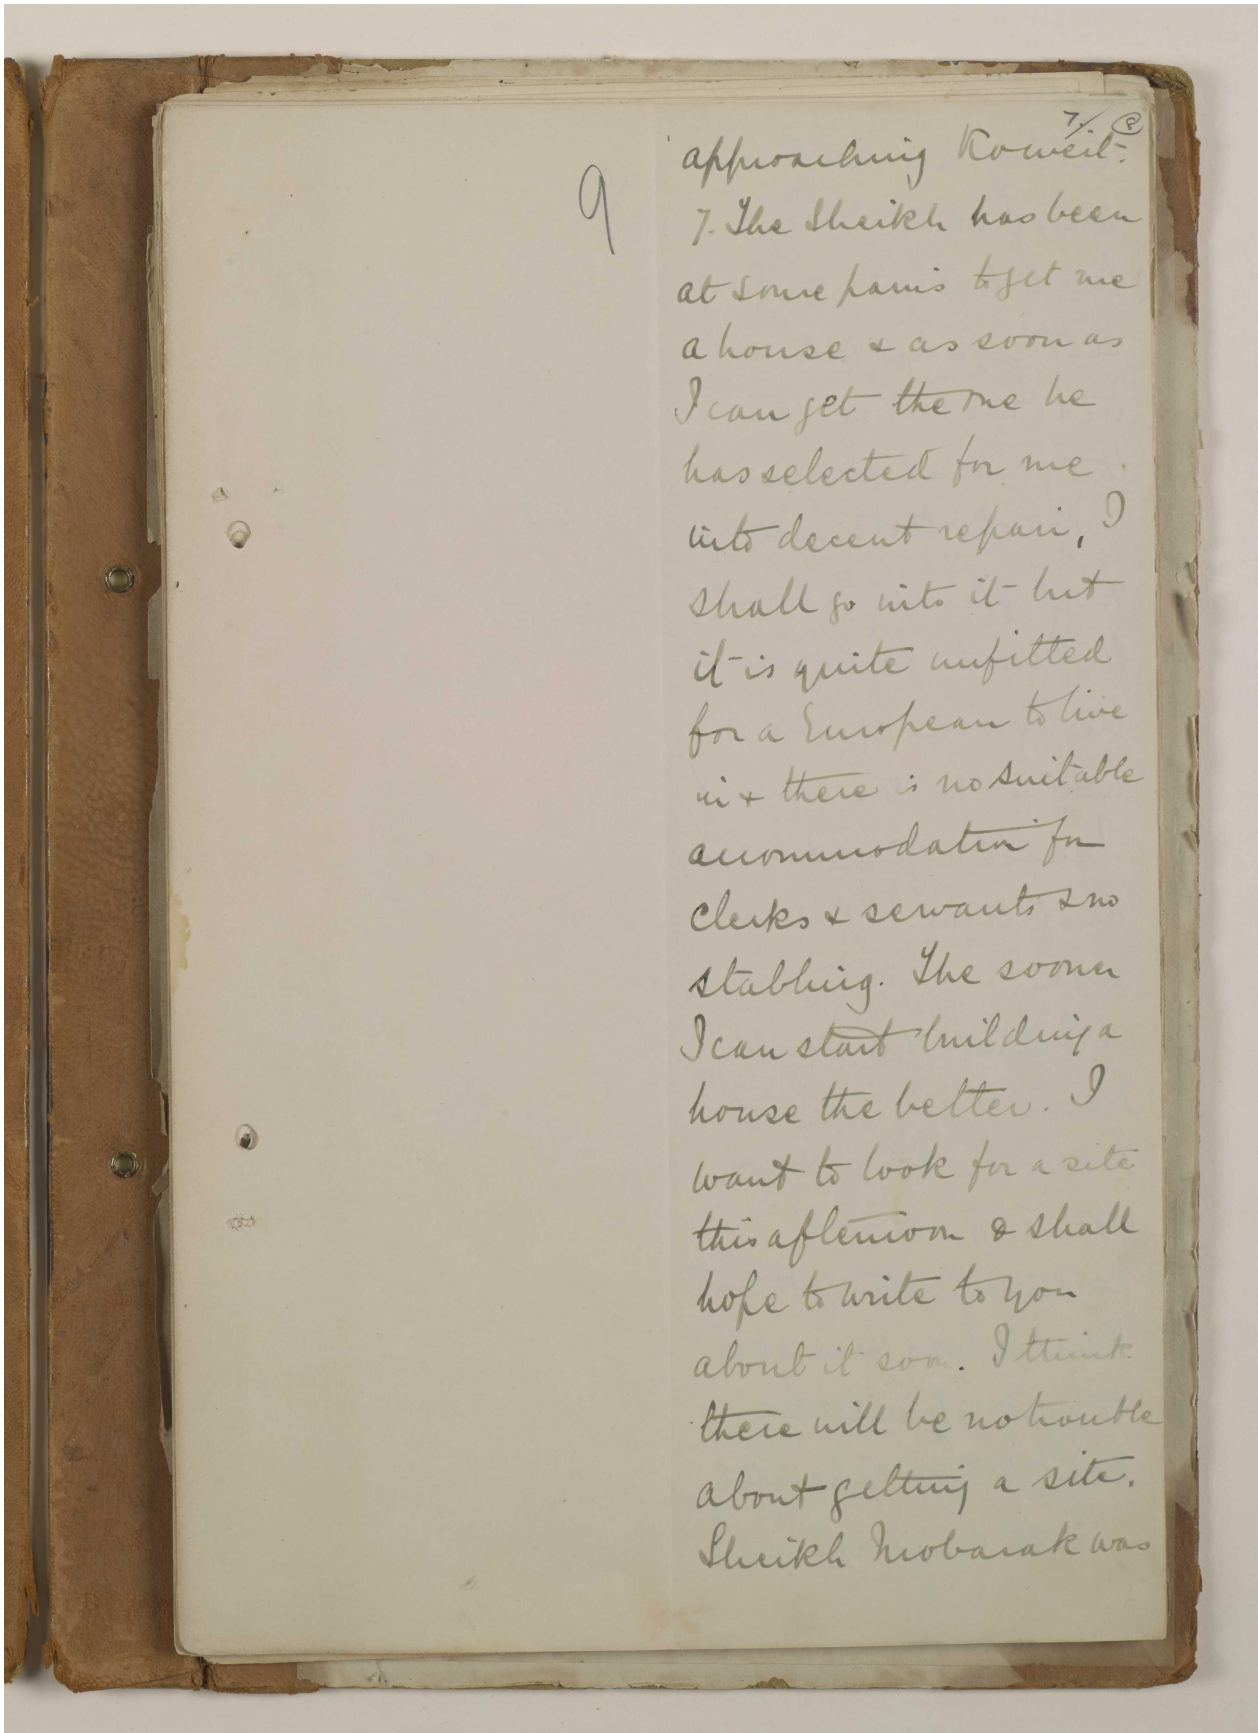 7/ 8
9
approaching Koweit.
7. The Sheikh has been
at some pains to get me
a house & as soon as
I can get the one he
has selected for me
into decent repair, I
shall go into it but
it is quite unfitted
for a European to live
in & there is no suitable
accommodation for
clerks & servants & no
stabling. The sooner
I can start building a
house the better. I
want to look for a site
this afternoon & shall
hope to write to you
about it soon. I think
there will be no trouble
about getting a site.
Sheikh Mobarak was